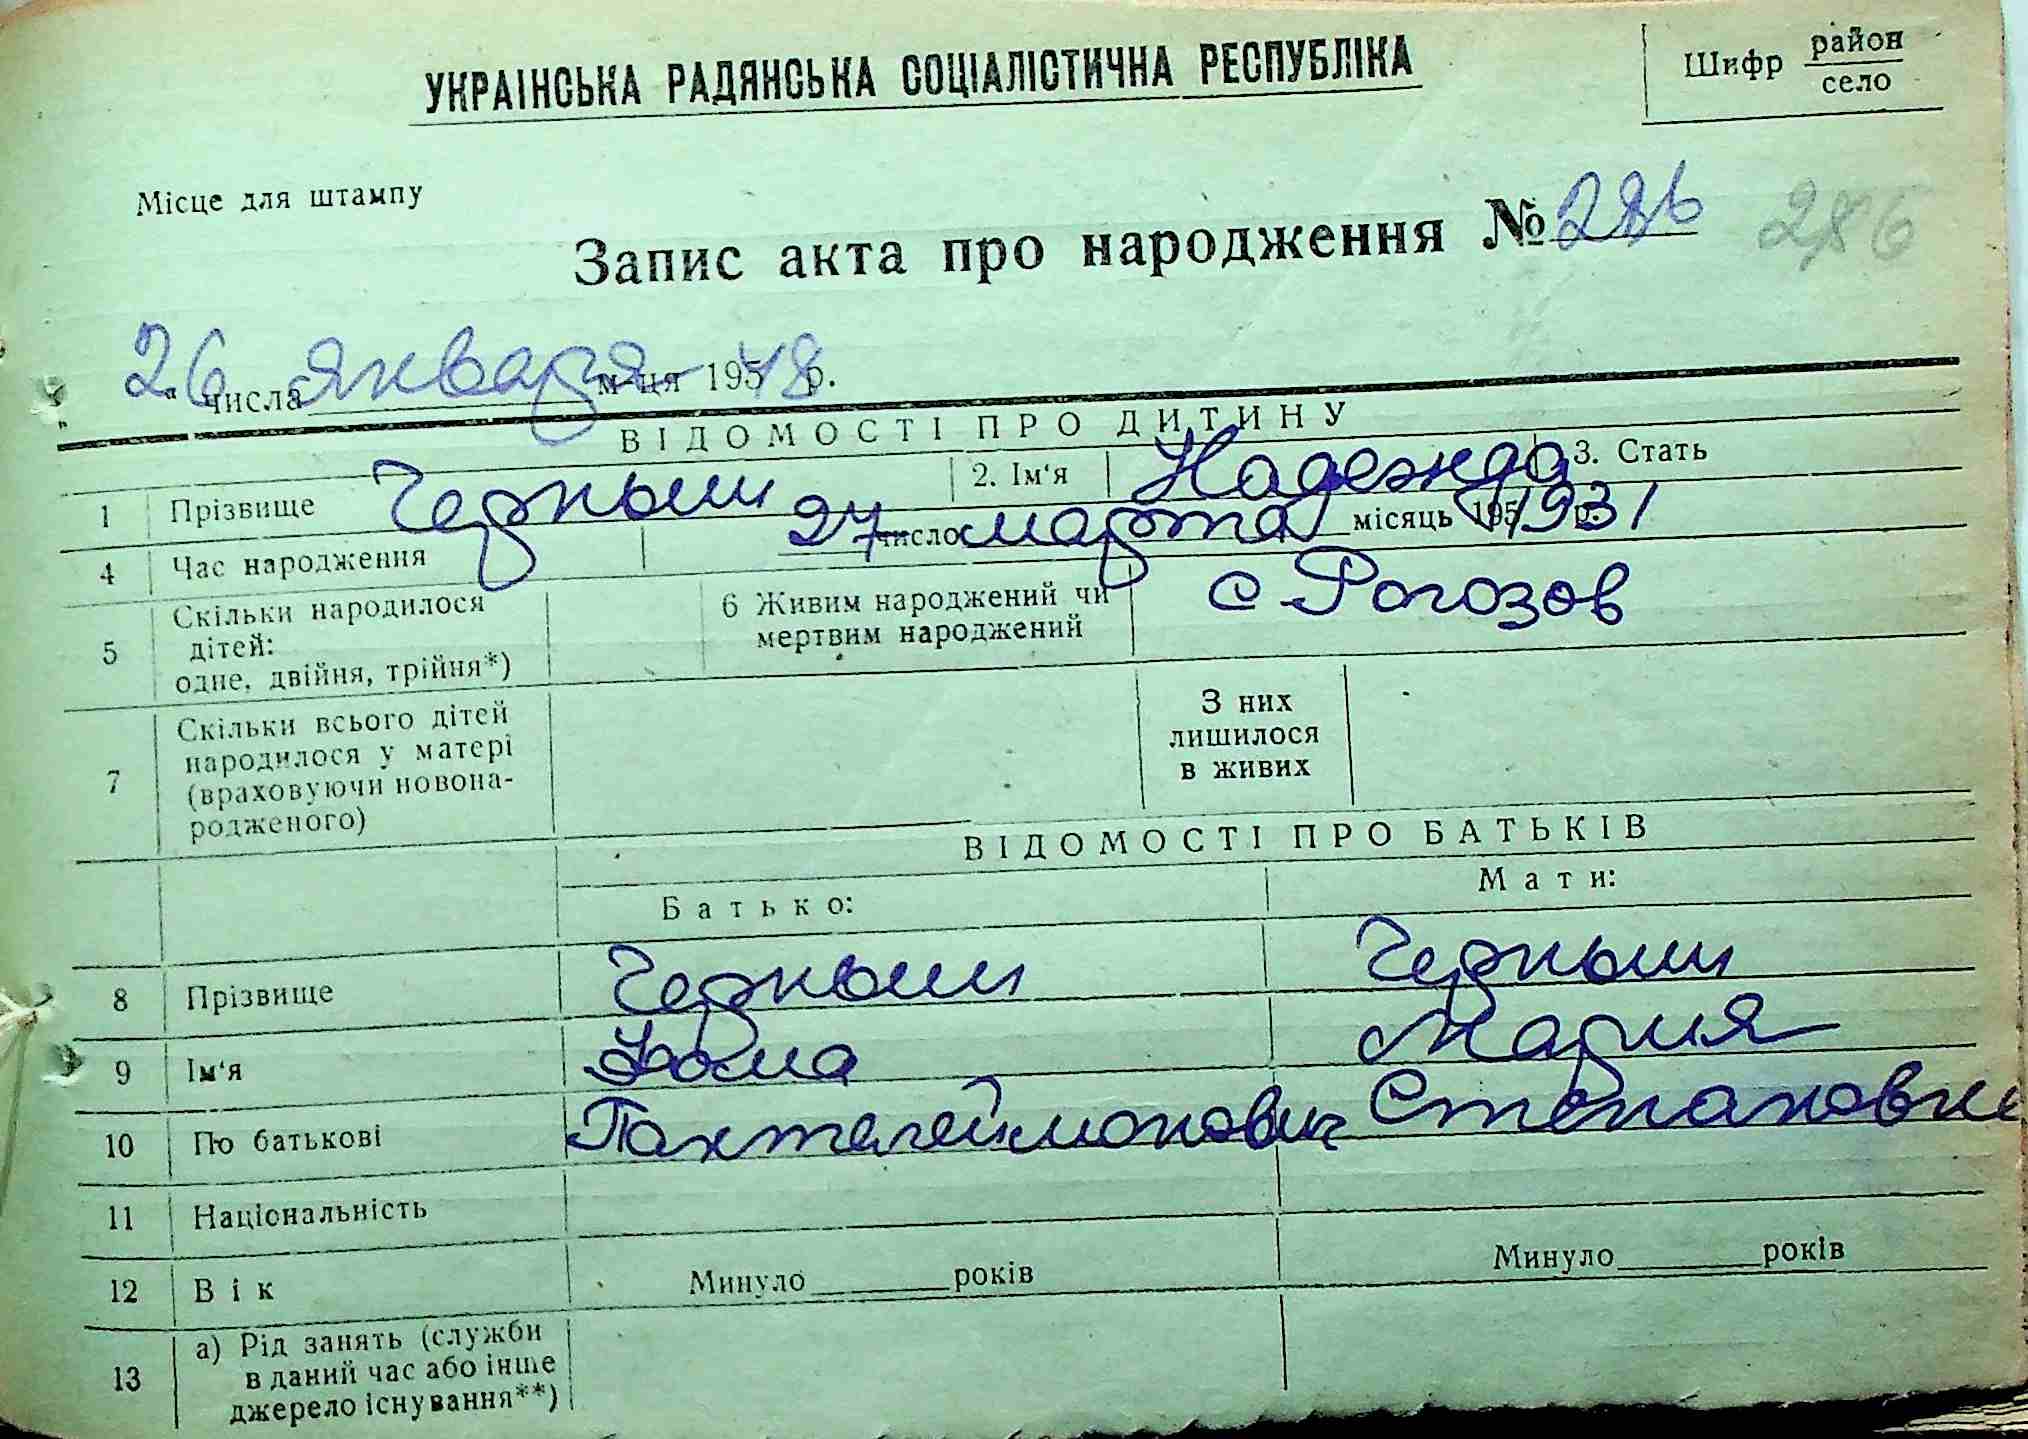 УКРАЇНСЬКА РАДЯНСЬКА СОЦІАЛІСТИЧНА РЕСПУБЛІКА
Шифр район
село
Місце для штампу
Запис акта про народження № 286 286
26 " числа января м-ця 195 48 р.
ВІДОМОСТІ ПРО ДИТИНУ
1 Прізвище Черныш 2. Ім'я Надежда 3. Стать
4 Час народження 27 число марта місяць 195 1931 р.
5 Скільки народилося
дітей:
одне, двійня, трійня*)
6 Живим народжений чи
мертвим народжений
с Рогозов
7 Скільки всього дітей
народилося у матері
(враховуючи новона-
родженого)
З них
лишилося
в живих
ВІДОМОСТІ ПРО БАТЬКІВ
Батько: Мати:
8 Прізвище Черныш Черныш
9 Ім'я Фома Мария
10 По батькові Пантелеймонович Степановна
11 Національність
12 Вік Минуло років Минуло років
13 а) Рід занять (служби
в даний час або інше
джерело існування**)